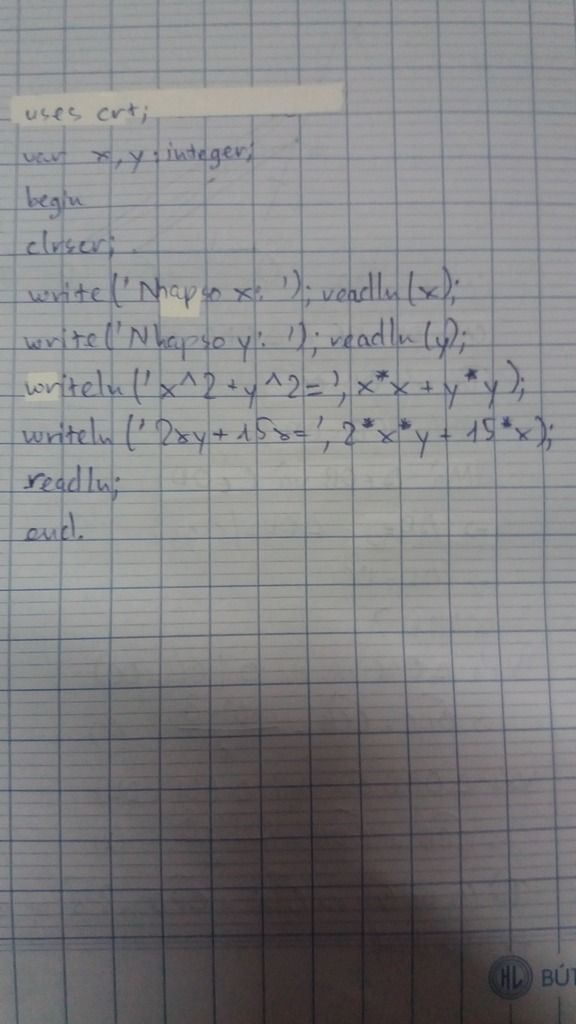 uses crt;
var x, y : integer;
begin
clrscr;
write('Nhap so x: '); readln(x);
write('Nhap so y: '); readln(y);
writeln('x^2+y^2=', x*x + y*y);
writeln('2xy+15x=', 2*x*y + 15*x);
readln;
end.
HL BÚT